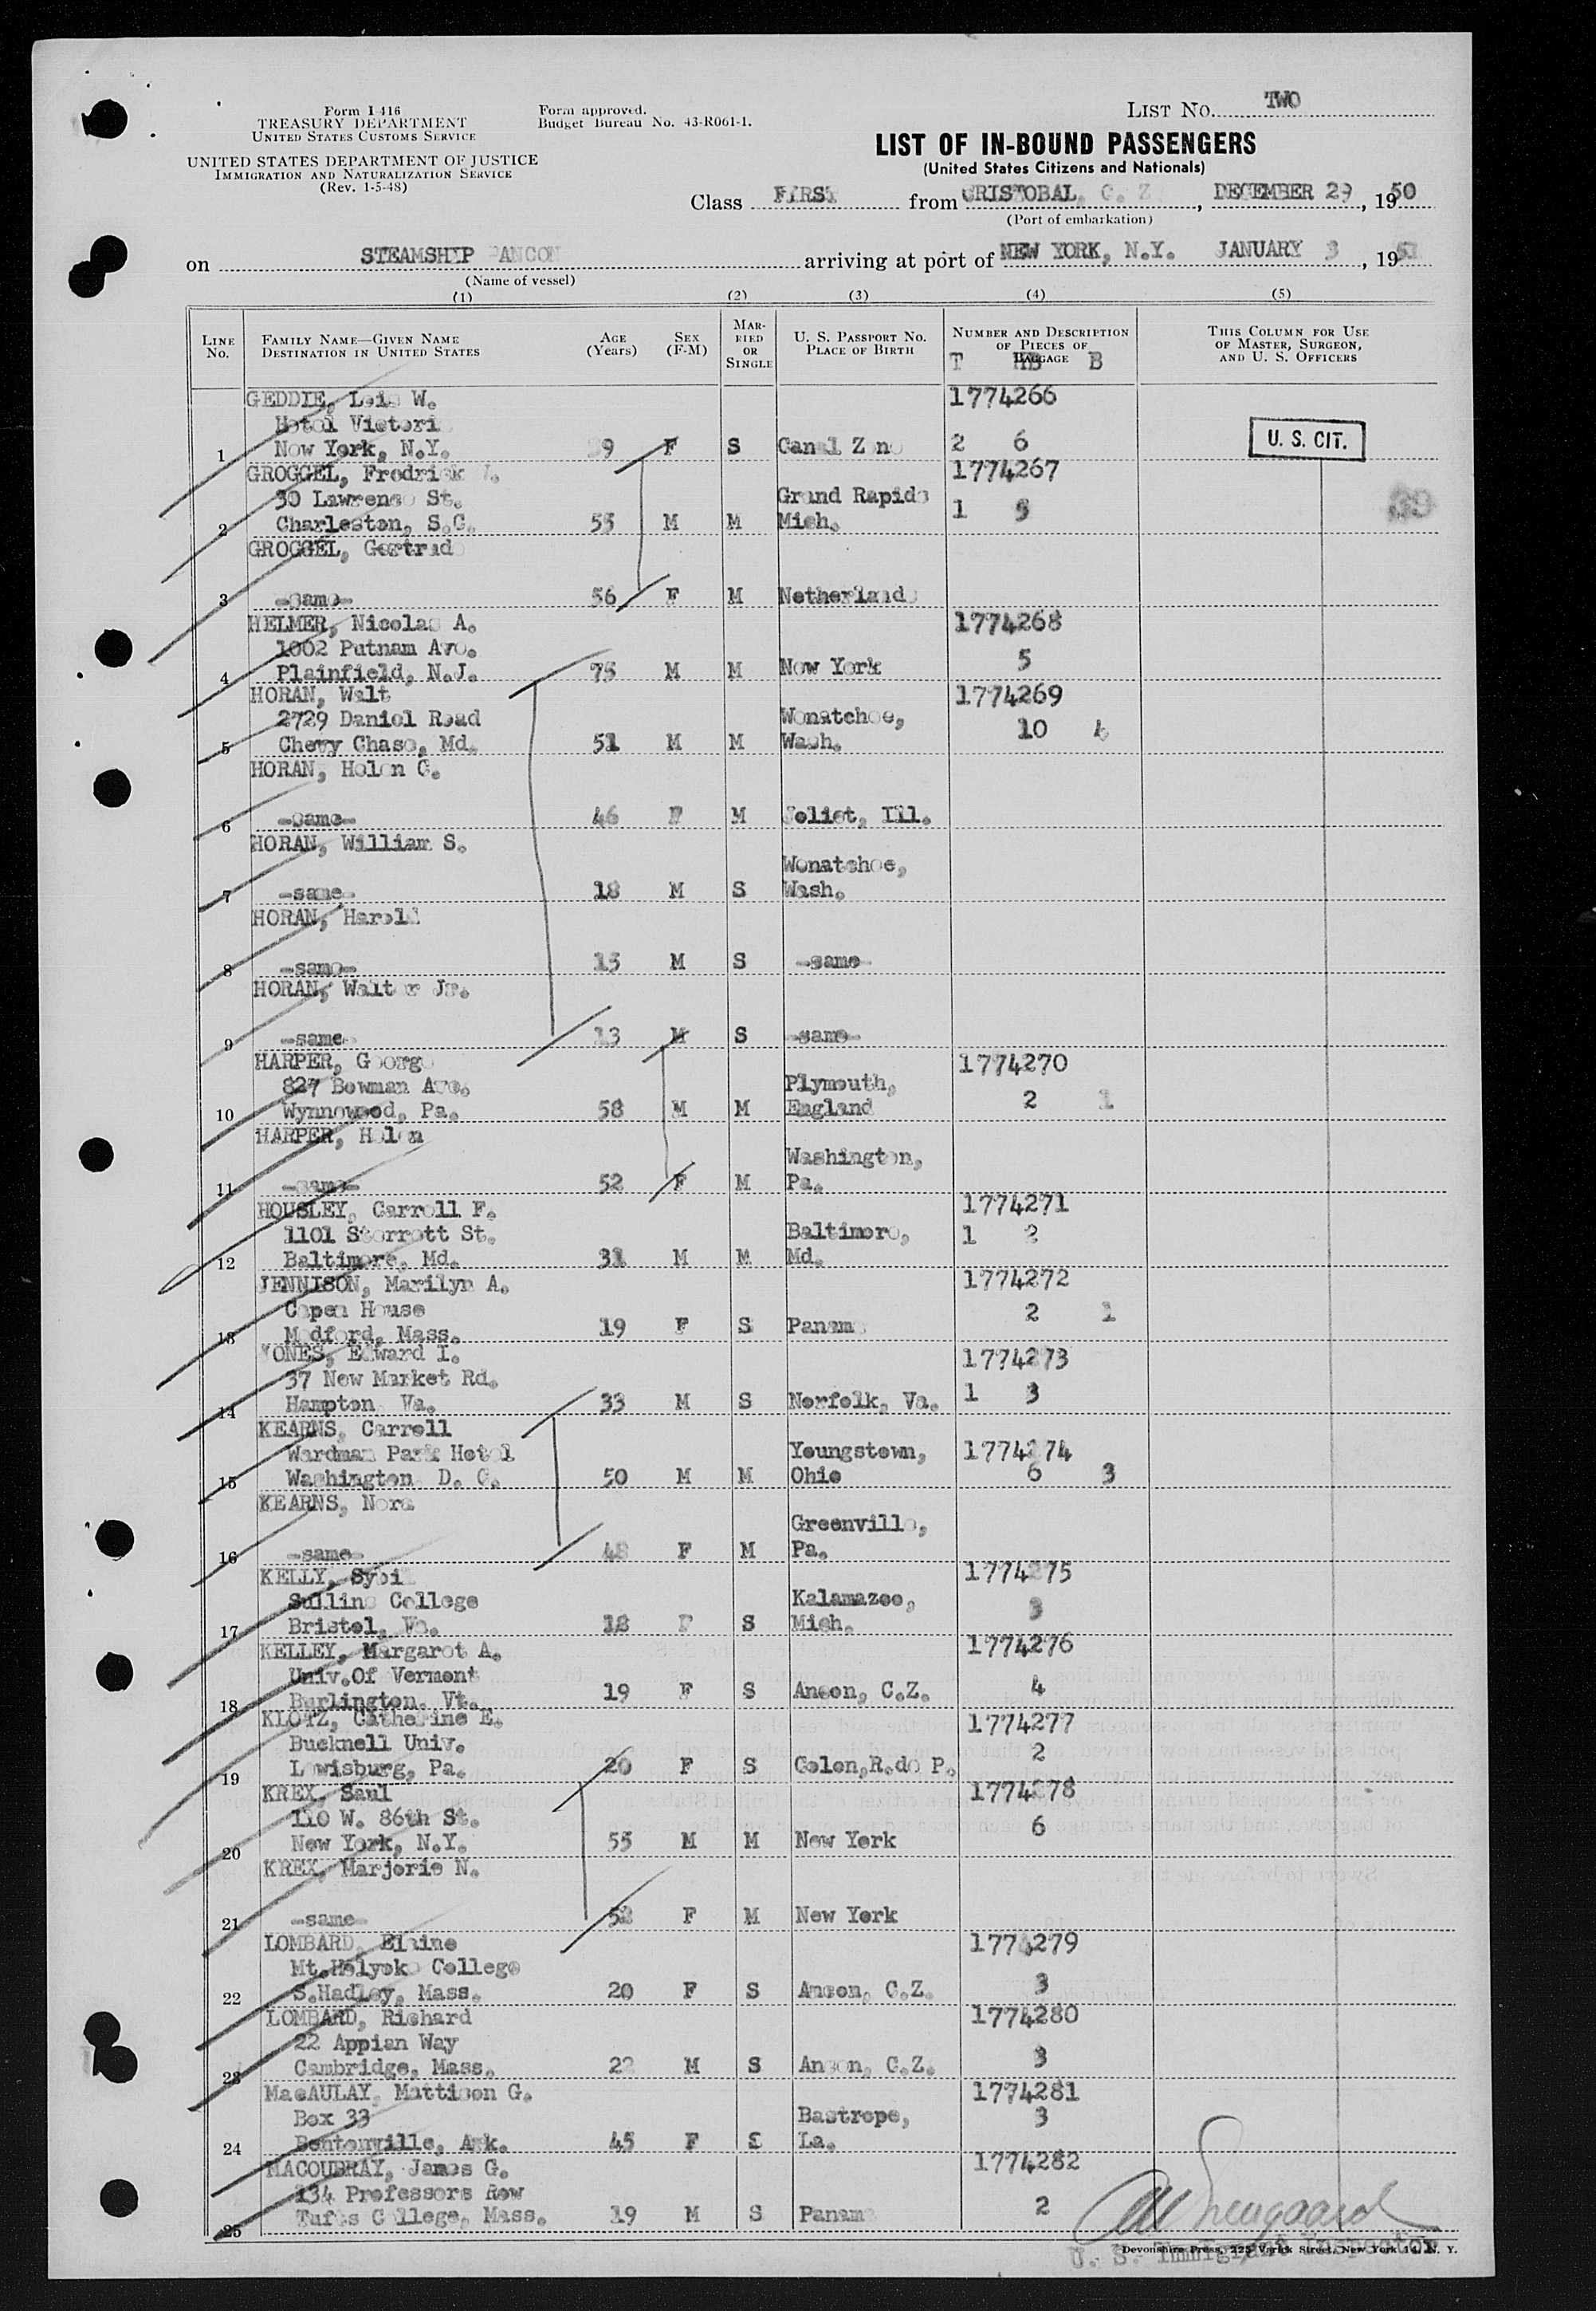 Form I-416
TREASURY DEPARTMENT
UNITED STATES CUSTOMS SERVICE
UNITED STATES DEPARTMENT OF JUSTICE
IMMIGRATION AND NATURALIZATION SERVICE
(Rev. 1-5-48)
Form approved.
Budget Bureau No. 43-R061-1.
LIST NO. TWO
LIST OF IN-BOUND PASSENGERS
(United States Citizens and Nationals)
Class FIRST from CRISTOBAL, C. Z., DECEMBER 29, 1950
(Port of embarkation)
on STEAMSHIP ANCON arriving at port of NEW YORK, N.Y. JANUARY 3, 1951
(Name of vessel)
(1) (2) (3) (4) (5)
LINE NO. FAMILY NAME—GIVEN NAME DESTINATION IN UNITED STATES AGE (Years) SEX (F-M) MARRIED OR SINGLE U. S. PASSPORT NO. PLACE OF BIRTH NUMBER AND DESCRIPTION OF PIECES OF BAGGAGE THIS COLUMN FOR USE OF MASTER, SURGEON, AND U. S. OFFICERS
T HB B
GEDDIE, Lois W. 1774266
Hotel Victoria
1 New York, N.Y. F S Canal Zone 2 6 U. S. CIT.
GROGGEL, Fredrick 1774267
30 Lawrence St. Grand Rapids
2 Charleston, S.C. 55 M M Mich. 1
GROGGEL, Gertrude
3 -same- 56 F M Netherlands
HELMER, Nicolas A. 1774268
1002 Putnam Ave.
4 Plainfield, N.J. 75 M M New York 5
HORAN, Walt 1774269
2729 Daniel Road Wenatchee,
5 Chevy Chase, Md. 51 M M Wash. 10 4
HORAN, Helen C.
6 -same- 46 F M Joliet, Ill.
HORAN, William S.
Wenatchee,
7 -same- 18 M S Wash.
HORAN, Harold
8 -same- 15 M S -same-
HORAN, Walter Jr.
9 -same- 13 M S -same-
HARPER, George 1774270
827 Bowman Ave. Plymouth,
10 Wynnewood, Pa. 58 M M England 2 1
HARPER, Helen
Washington,
11 -same- 52 F M Pa.
HOUSLEY, Carroll F. 1774271
1101 Sterrett St. Baltimore,
12 Baltimore, Md. 31 M M Md. 1 2
JENNISON, Marilyn A. 1774272
Capen House
13 Medford, Mass. 19 F S Panama 2 1
JONES, Edward I. 1774273
37 New Market Rd.
14 Hampton Va. 33 M S Norfolk, Va. 1 3
KEARNS, Carroll
Wardman Park Hotel Youngstown, 1774274
15 Washington D. C. 50 M M Ohio 6 3
KEARNS, Nora
Greenville,
16 -same- 48 F M Pa.
KELLY, Sybil 1774275
Sullins College Kalamazoo,
17 Bristol, Va. 18 F S Mich. 3
KELLEY, Margaret A. 1774276
Univ.Of Vermont
18 Burlington, Vt. 19 F S Ancon, C.Z. 4
KLOTZ, Catherine E. 1774277
Bucknell Univ.
19 Lewisburg, Pa. 20 F S Colon,R.de P. 2
KREX, Saul 1774278
110 W. 86th St.
20 New York, N.Y. 55 M M New York 6
KREX, Marjorie N.
21 -same- 52 F M New York
LOMBARD, Elaine 1774279
Mt.Holyoke College
22 S.Hadley, Mass. 20 F S Ancon, C.Z. 3
LOMBARD, Richard 1774280
22 Appian Way
23 Cambridge, Mass. 22 M S Ancon, C.Z. 3
MacAULAY, Mattison G. 1774281
Box 33 Bastrope,
24 Bentonville, Ark. 45 F S La. 3
MACOUBRAY, James G. 1774282
134 Professors Row
25 Tufts College, Mass. 19 M S Panama 2
U. S. Immigrant Inspector
Devonshire Press, 225 Varick Street, New York 14, N. Y.